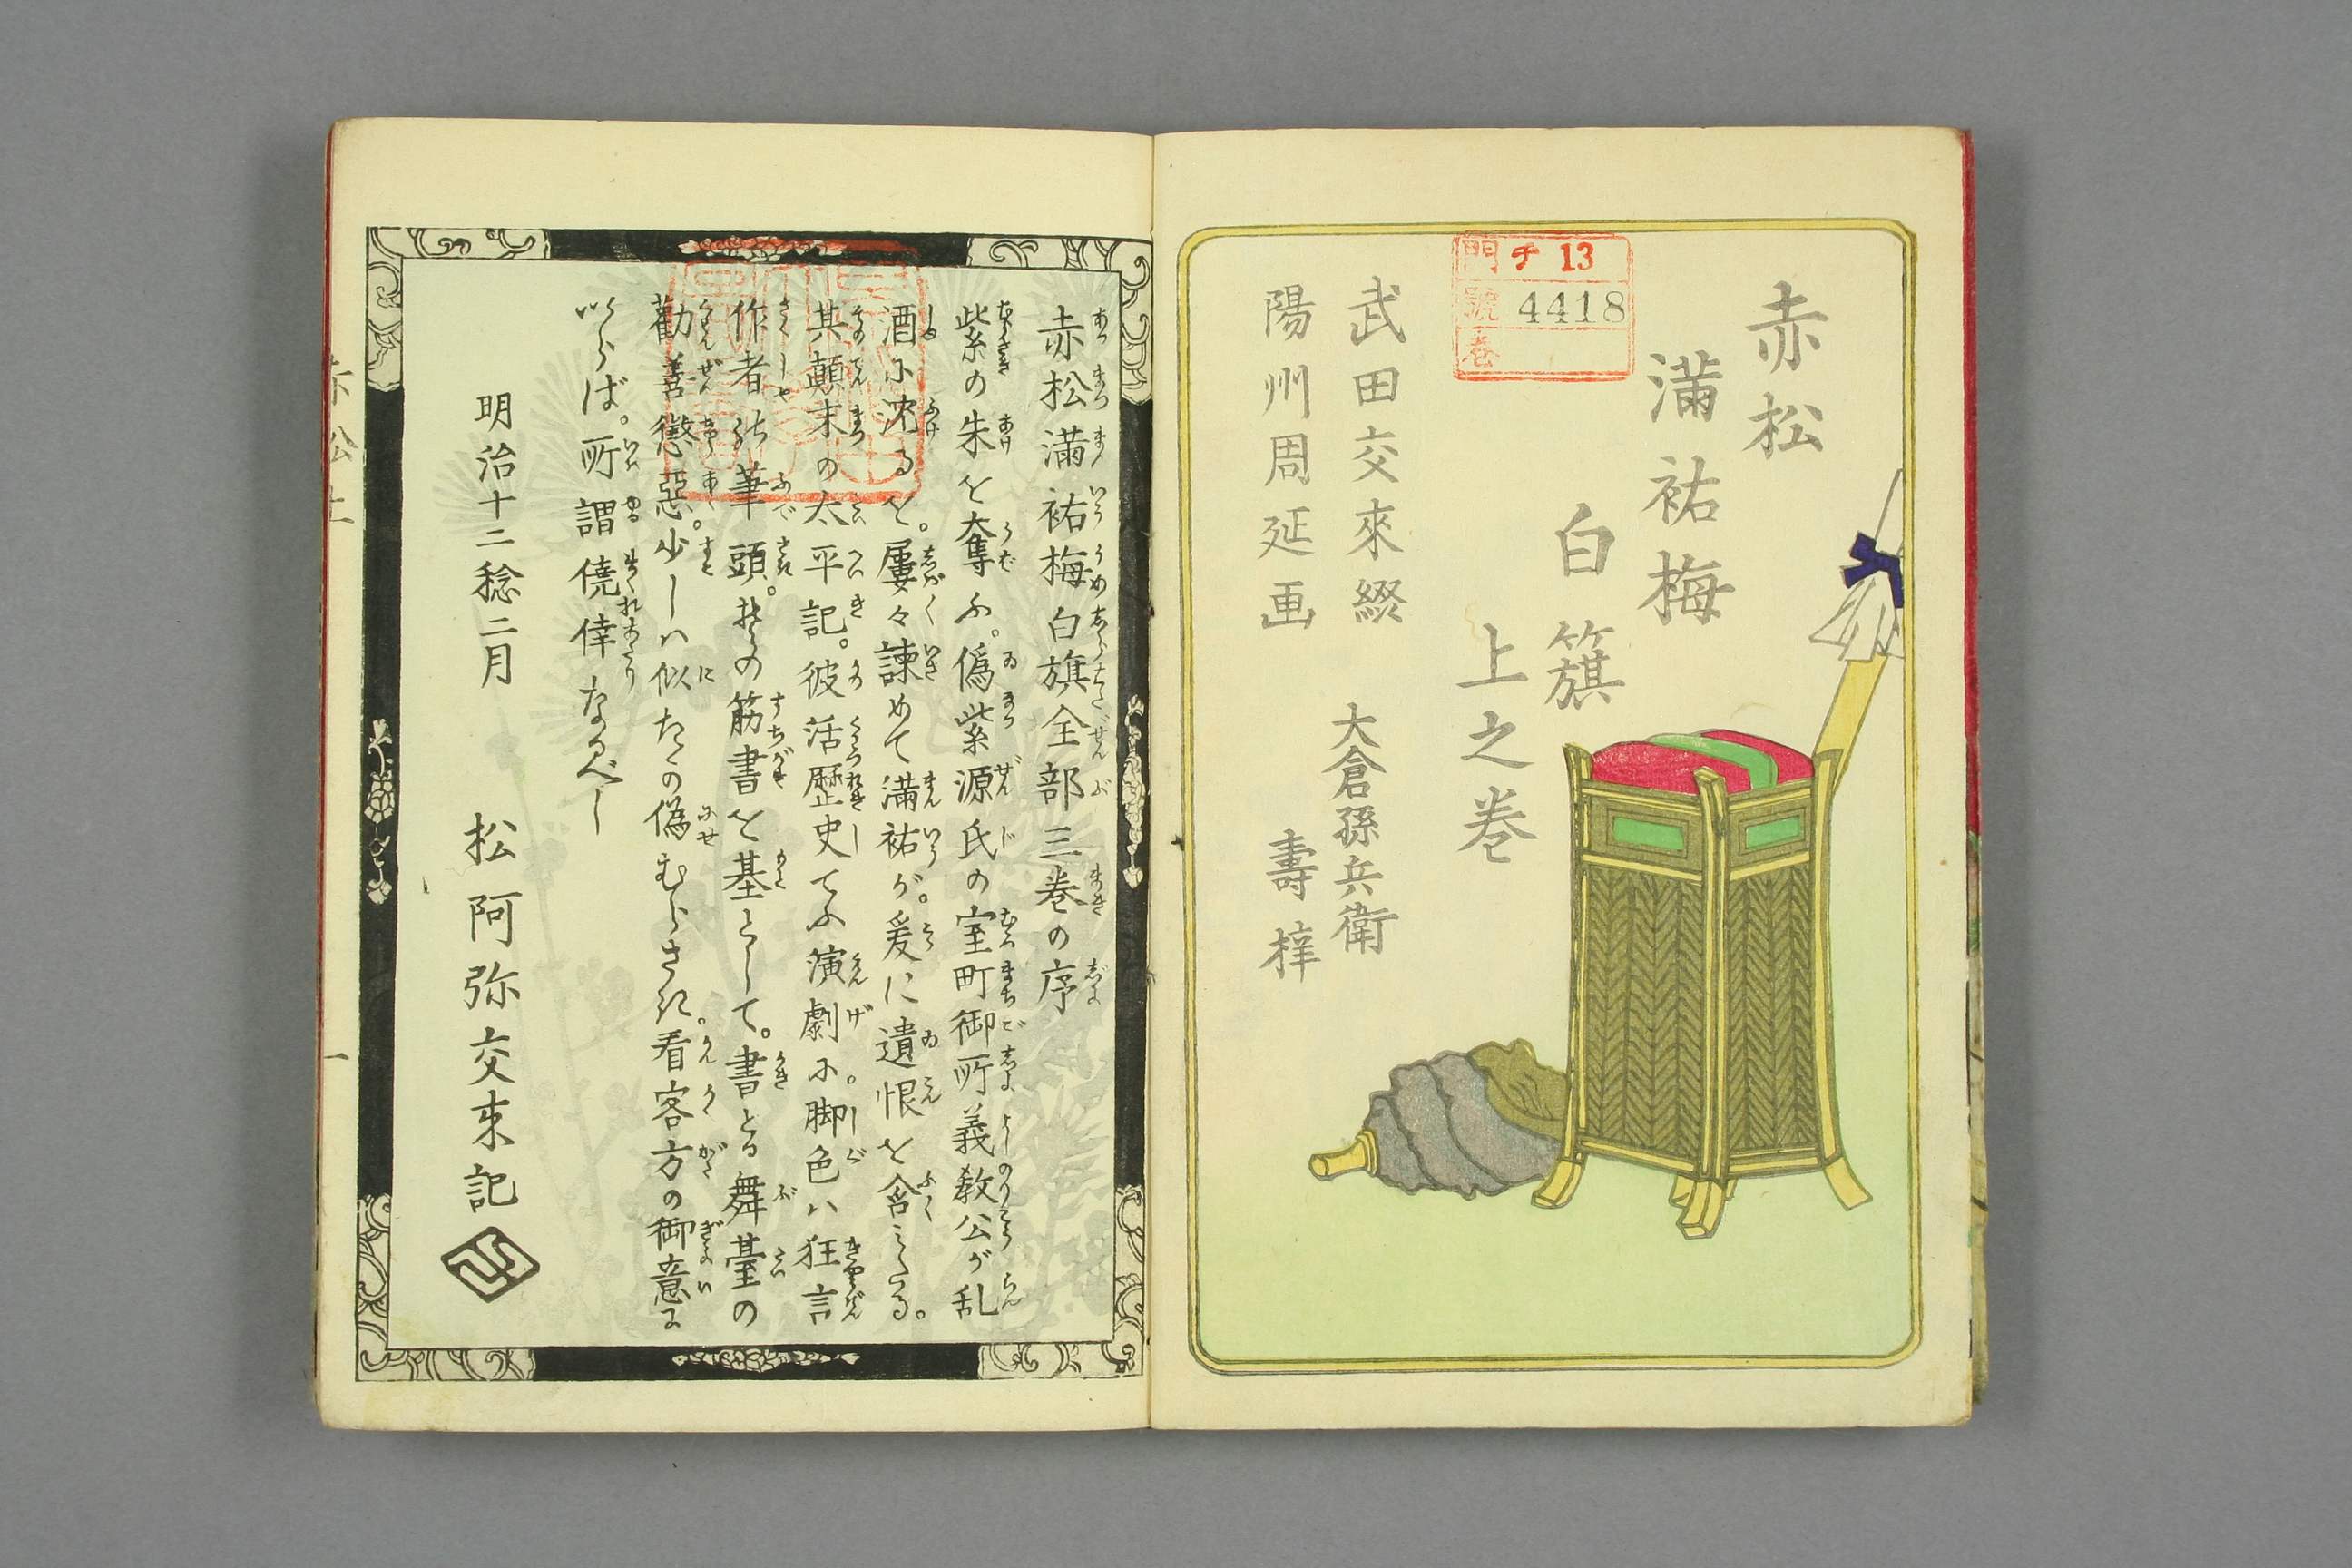 赤松
満祐梅
白籏
上之巻
武田交來綴
陽州周延画
大倉孫兵衛
壽梓
門 チ 13
號 4418
巻
赤松満祐梅白旗全部三巻の序
紫の朱を奪ふ。偽紫源氏の室町御所義教公が乱
酒に沈るを。屡々諫めて満祐が。爰に遺恨を含みたる。
其顛末の太平記。彼活歴史てふ演劇に脚色ハ狂言
作者の筆頭。其の筋書を基として。書とる舞臺の
勸善懲惡。少しハ似たの偽むらさき。看客方の御意に
いらば。所謂僥倖なるべし
明治十二稔二月
松阿弥交来記
赤松上
一